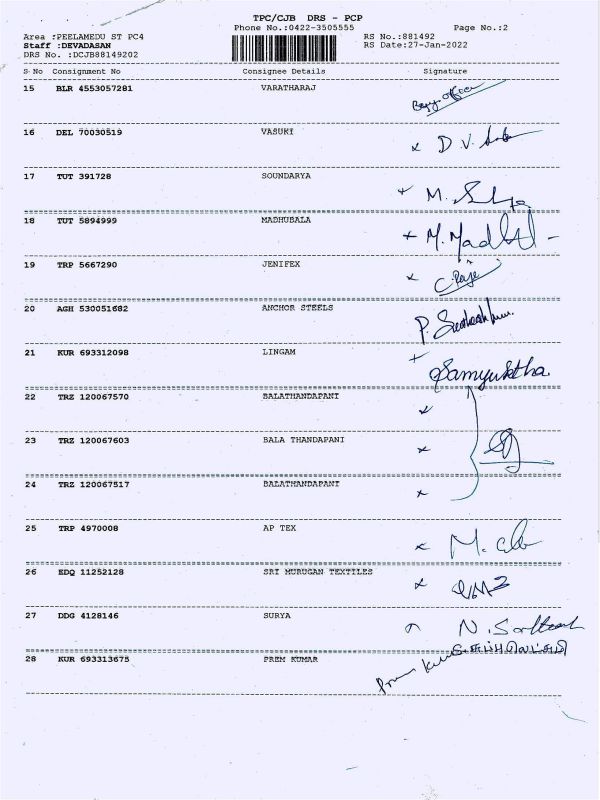 TPC/CJB DRS - PCP
Phone No.:0422-3505555 Page No.:2
Area :PEELAMEDU ST PC4 RS No.:881492
Staff :DEVADASAN RS Date:27-Jan-2022
DRS No. :DCJB88149202
S No Consignment No Consignee Details Signature
15 BLR 4553057281 VARATHARAJ
16 DEL 70030519 VASUKI D.V.
17 TUT 391728 SOUNDARYA M.
18 TUT 5894999 MADHUBALA M.
19 TRP 5667290 JENIFEX C. Raje
20 AGH 530051682 ANCHOR STEELS P.
21 KUR 693312098 LINGAM Samyuktha
22 TRZ 120067570 BALATHANDAPANI
23 TRZ 120067603 BALA THANDAPANI
24 TRZ 120067517 BALATHANDAPANI
25 TRP 4970008 AP TEX M.
26 EDQ 11252128 SRI MURUGAN TEXTILES
27 DDG 4128146 SURYA N.
28 KUR 693313675 PREM KUMAR Prem Kum